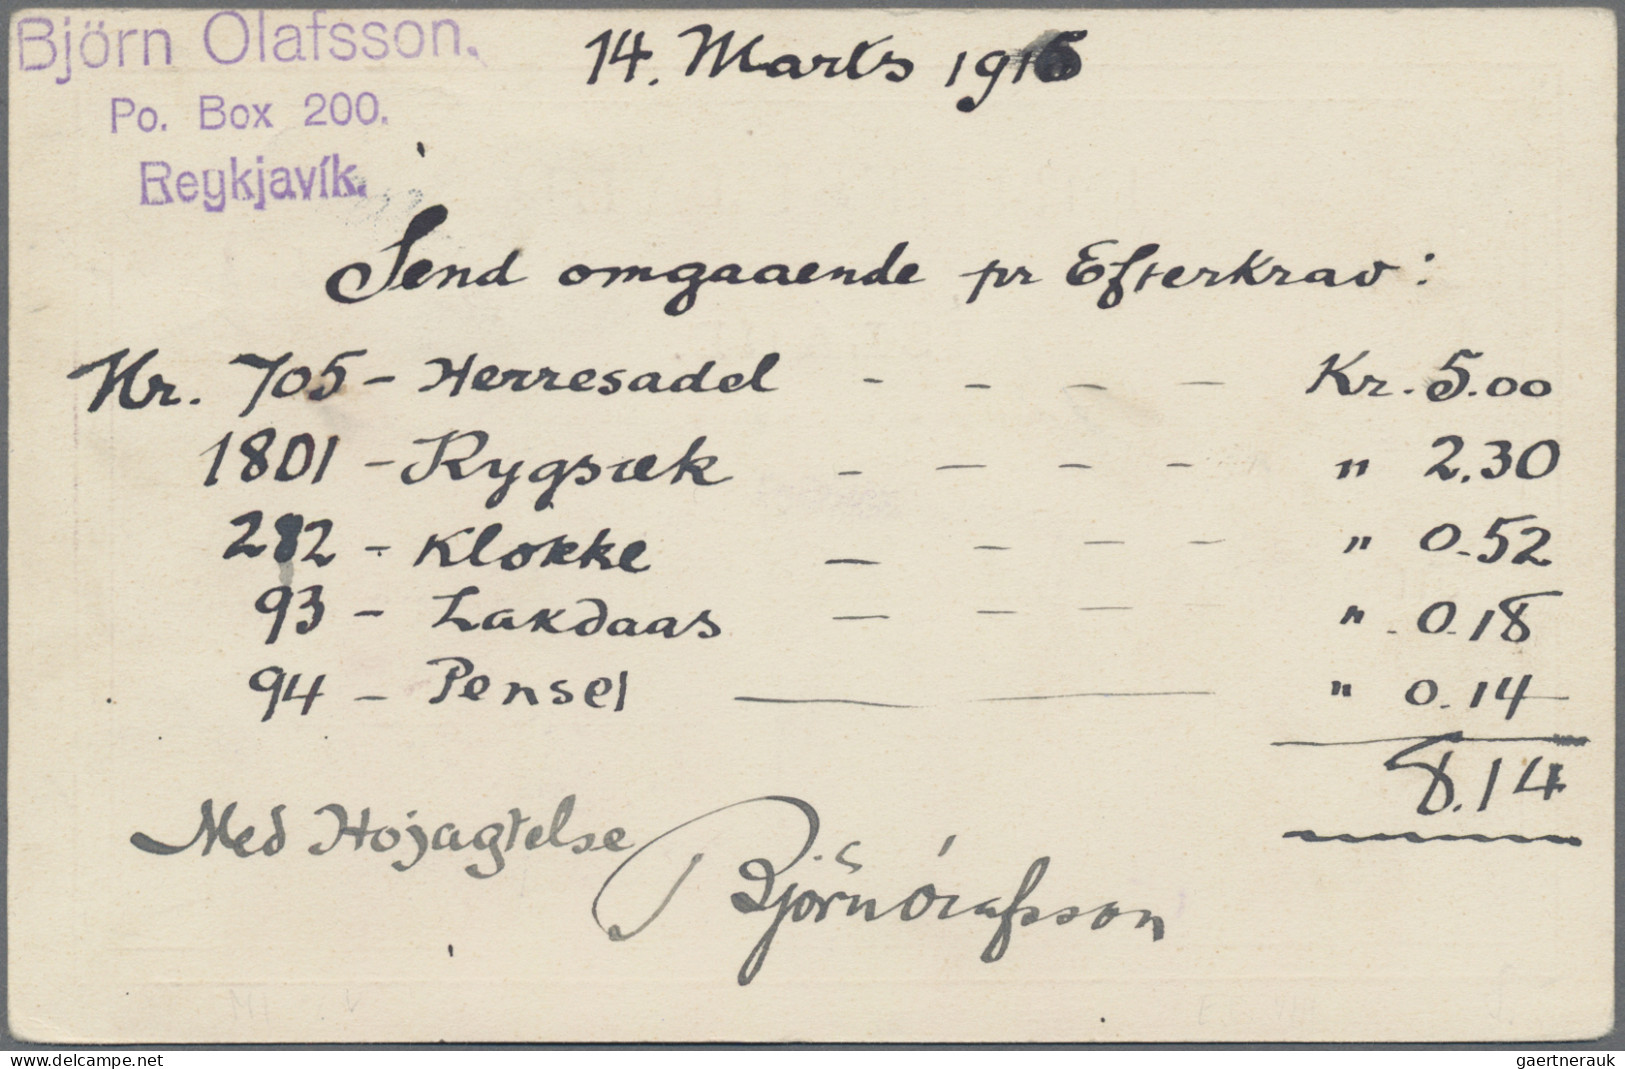 Björn Olafsson.
Po. Box 200.
Reykjavík.
14. Marts 1916
Send omgaaende pr Efterkrav:
Nr. 705 - Herresadel - - - - Kr. 5.00
1801 - Rygsæk - - - - " 2.30
282 - Klokke - - - - " 0.52
93 - Lakdaas - - - - " 0.18
94 - Pensel — — " 0.14
8.14
Med Højagtelse
Björn Ólafsson
delcampe.net
gaertnerauk